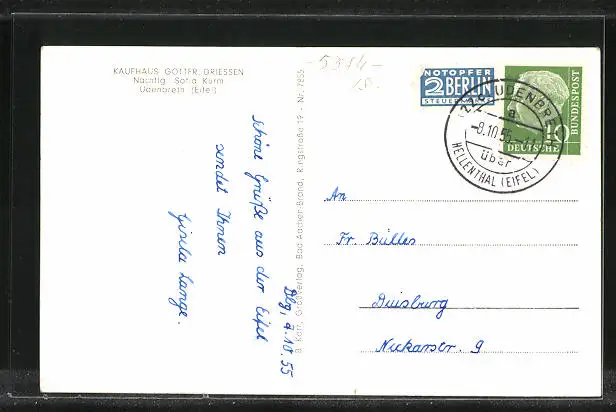 KAUFHAUS GOTTFR. DRIESSEN
Nachflg. Sofia Kurm
Udenbreth (Eifel)
5354-
Dbg, 7.10.55
schöne Grüße aus der Eifel
sendet Ihnen
Gisela Lange.
B. Karl, Großverlag, Bad Aachen-Brand, Ringstraße 19 - Nr. 7855
NOTOPFER
2 BERLIN
STEUERMARKE
10
DEUTSCHE
BUNDESPOST
UDENBRETH
a
-8.10.55
über
HELLENTHAL (EIFEL)
An
Fr. Bülles
Duisburg
Neckarstr. 9